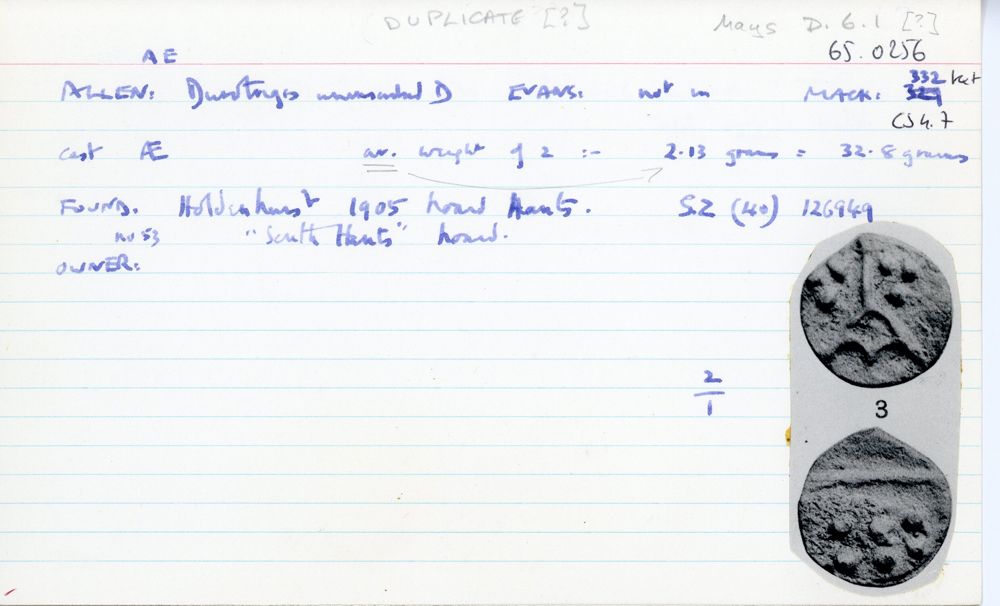 (DUPLICATE [?] Mays D.6.1 [?]
65.0256
AE
ALLEN: Durotriges uninscribed D EVANS: not in MACK: 332 text
321
CS4.7
cast Æ av. weight of 2 :- 2.13 grams = 32.8 grains
FOUND. Holdenhurst 1905 hoard Hants. SZ (40) 126949
no 53 "South Hants" hoard.
OWNER:
2
1
3